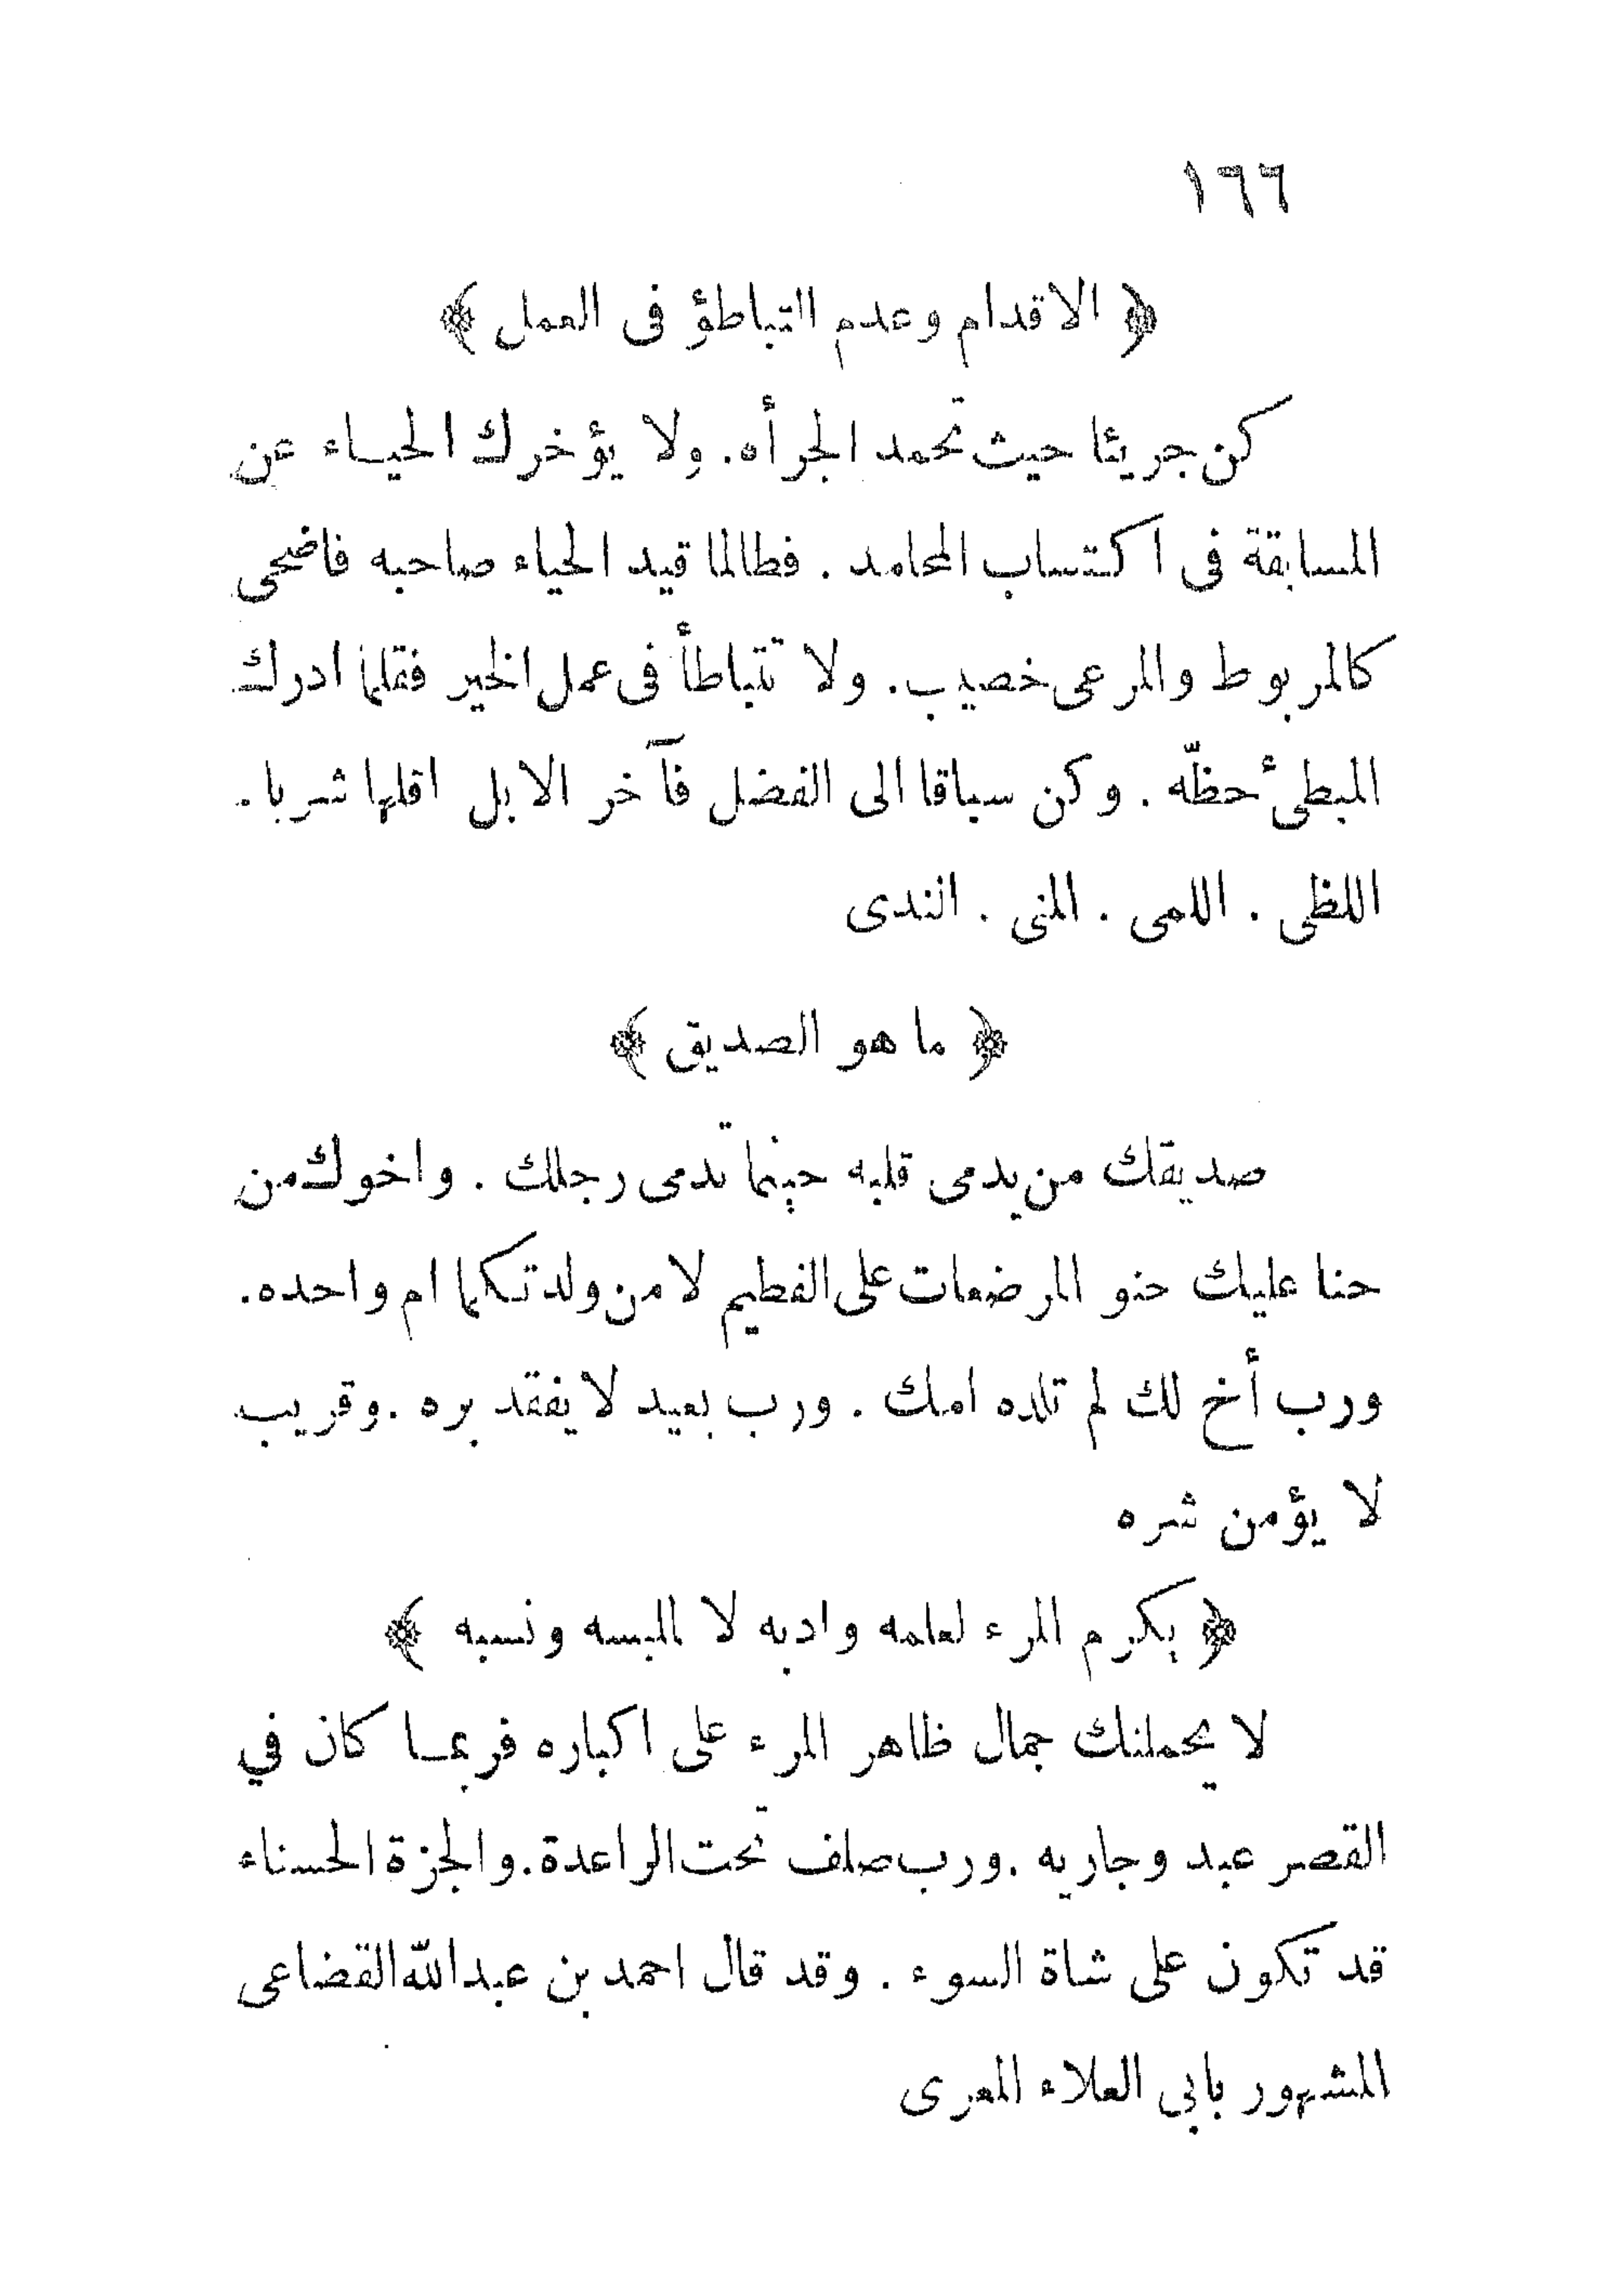 ١٦٦
﴿ الاقدام وعدم التباطؤ فى العمل ﴾
كن جريئا حيث تحمد الجرأه. ولا يؤخرك الحياء عن
المسابقة فى اكتساب المحامد . فطالما قيد الحياء صاحبه فاضحى
كالمربوط والمرعى خصيب. ولا تتباطأ فى عمل الخير فقلما ادرك
المبطئ حظّه . وكن سباقا الى الفضل فآخر الابل اقلها شربا .
اللظى . اللمى . المنى . الندى
﴿ ما هو الصديق ﴾
صديقك من يدمى قلبه حينما تدمى رجلك . واخوك من
حنا عليك حنو المرضعات على الفطيم لا من ولدتكما ام واحده.
ورب أخ لك لم تلده امك . ورب بعيد لا يفقد بره .وقريب
لا يؤمن شره
﴿ يكرم المرء لعلمه وادبه لا لملبسه ونسبه ﴾
لا يحملنك جمال ظاهر المرء على اكباره فربما كان في
القصر عبد وجاريه .ورب صلف تحت الراعدة.والجزة الحسناء
قد تكون على شاة السوء . وقد قال احمد بن عبدالله القضاعى
المشهور بابى العلاء المعرى